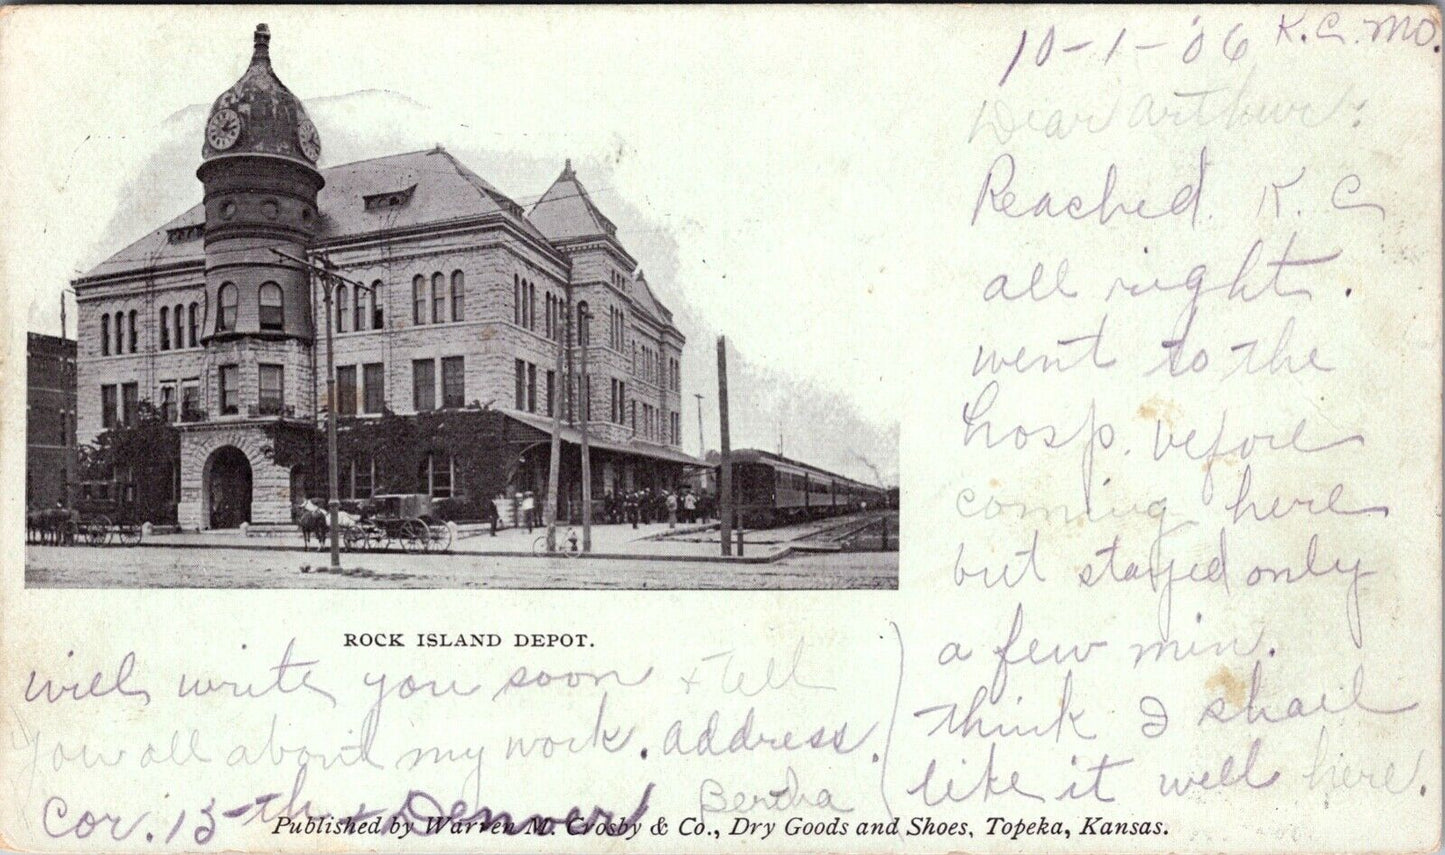 10-1-'06 K.C. Mo.
Dear Arthur:
Reached K. C
all right.
went to the
hosp. before
coming here
but stayed only
a few min.
think I shall
like it well here.
will write you soon + tell
you all about my work. address.
Cor. 13-th + Denver Bertha
ROCK ISLAND DEPOT.
Published by Warren M. Crosby & Co., Dry Goods and Shoes, Topeka, Kansas.